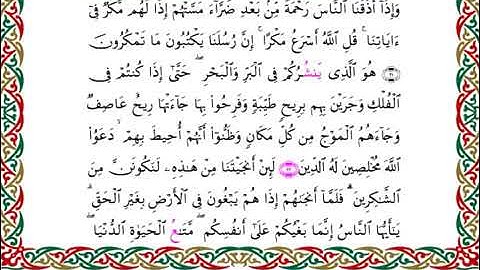 وَإِذَآ أَذَقْنَا ٱلنَّاسَ رَحْمَةً مِّنۢ بَعْدِ ضَرَّآءَ مَسَّتْهُمْ إِذَا لَهُم مَّكْرٌ فِىٓ
ءَايَاتِنَا ۚ قُلِ ٱللَّهُ أَسْرَعُ مَكْرًا ۚ إِنَّ رُسُلَنَا يَكْتُبُونَ مَا تَمْكُرُونَ
۝٢١ هُوَ ٱلَّذِى يَنشُرُكُمْ فِى ٱلْبَرِّ وَٱلْبَحْرِ ۖ حَتَّىٰٓ إِذَا كُنتُمْ فِى
ٱلْفُلْكِ وَجَرَيْنَ بِهِم بِرِيحٍ طَيِّبَةٍ وَفَرِحُوا۟ بِهَا جَآءَتْهَا رِيحٌ عَاصِفٌ
وَجَآءَهُمُ ٱلْمَوْجُ مِن كُلِّ مَكَانٍ وَظَنُّوٓا۟ أَنَّهُمْ أُحِيطَ بِهِمْ ۙ دَعَوُا۟
ٱللَّهَ مُخْلِصِينَ لَهُ ٱلدِّينَ ۝٢٢ لَئِنْ أَنجَيْتَنَا مِنْ هَٰذِهِۦ لَنَكُونَنَّ مِنَ
ٱلشَّٰكِرِينَ ۝ فَلَمَّآ أَنجَىٰهُمْ إِذَا هُمْ يَبْغُونَ فِى ٱلْأَرْضِ بِغَيْرِ ٱلْحَقِّ ۗ
يَٰٓأَيُّهَا ٱلنَّاسُ إِنَّمَا بَغْيُكُمْ عَلَىٰٓ أَنفُسِكُم ۖ مَّتَٰعُ ٱلْحَيَوٰةِ ٱلدُّنْيَا ۖ